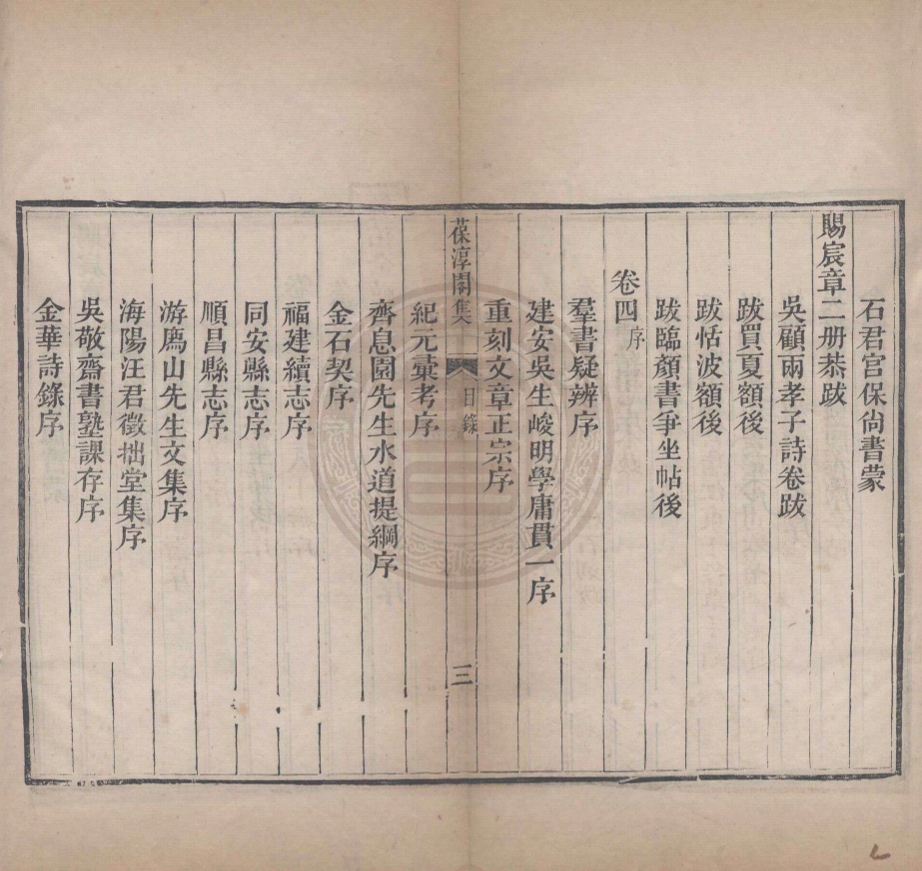 石君宫保尚書蒙
賜宸章二册恭跋
吳顧兩孝子詩卷跋
跋買夏額後
跋恬波額後
跋臨顏書爭坐帖後
卷四序
羣書疑辨序
建安吳生峻明學庸貫一序
重刻文章正宗序
葆淳閣集
目錄
三
紀元彙考序
齊息園先生水道提綱序
金石契序
福建續志序
同安縣志序
順昌縣志序
游廌山先生文集序
海陽汪君徵拙堂集序
吳敬齋書塾課存序
金華詩錄序